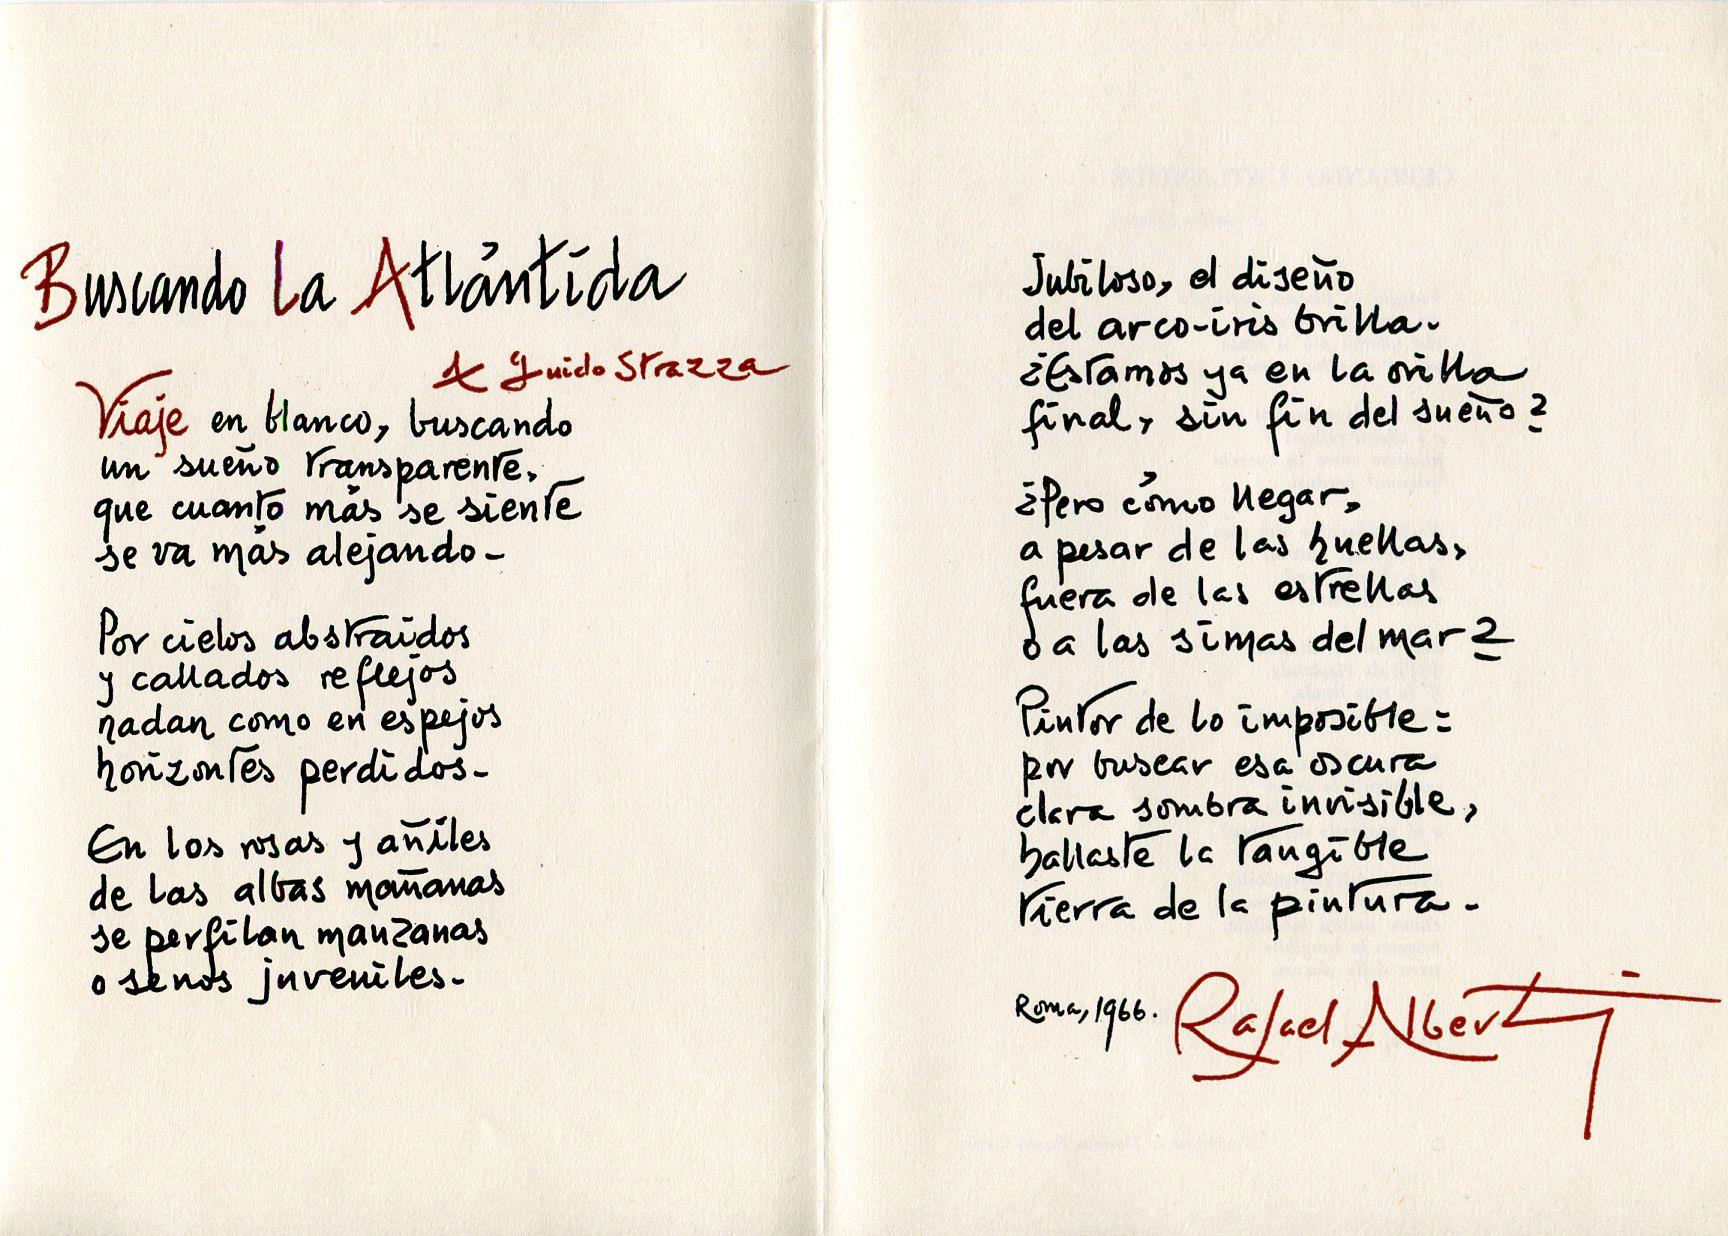 Buscando La Atlántida
A Guido Strazza
Viaje en blanco, buscando
un sueño transparente,
que cuanto más se siente
se va más alejando-
Por cielos abstraidos
y callados reflejos
nadan como en espejos
horizontes perdidos-
En los rosas y añiles
de las albas mañanas
se perfilan manzanas
o senos juveniles-
Jubiloso, el diseño
del arco-iris brilla-
¿Estamos ya en la orilla
final, sin fin del sueño?
¿Pero cómo llegar,
a pesar de las huellas,
fuera de las estrellas
o a las simas del mar?
Pintor de lo imposible:
por buscar esa oscura
clara sombra invisible,
hallaste la tangible
tierra de la pintura-
Roma, 1966. Rafael Alberti